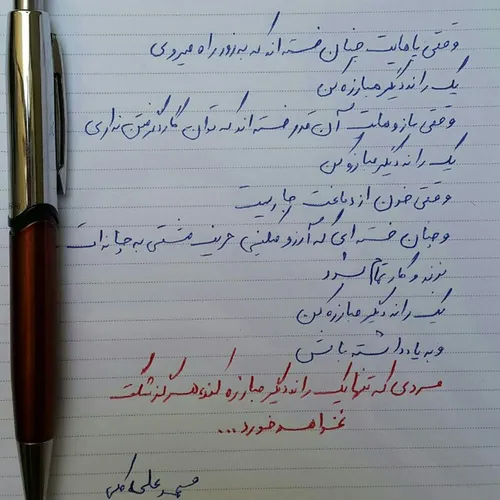 وقتی پاهایت چنان خسته اند که به زور راه میروی
یک راند دیگر مبارزه کن
وقتی بازوهایت آن قدر خسته اند که توان گارد گرفتن نداری
یک راند دیگر مبارزه کن
وقتی خون از دماغت جاریست
و چنان خسته ای که آرزو میکنی حریف مشتی به چانه ات
بزند و کار تمام شود
یک راند دیگر مبارزه کن
و به یاد داشته باش
مردی که تنها یک راند دیگر مبارزه کند هرگز شکست
نخواهد خورد...
محمد علی کلی